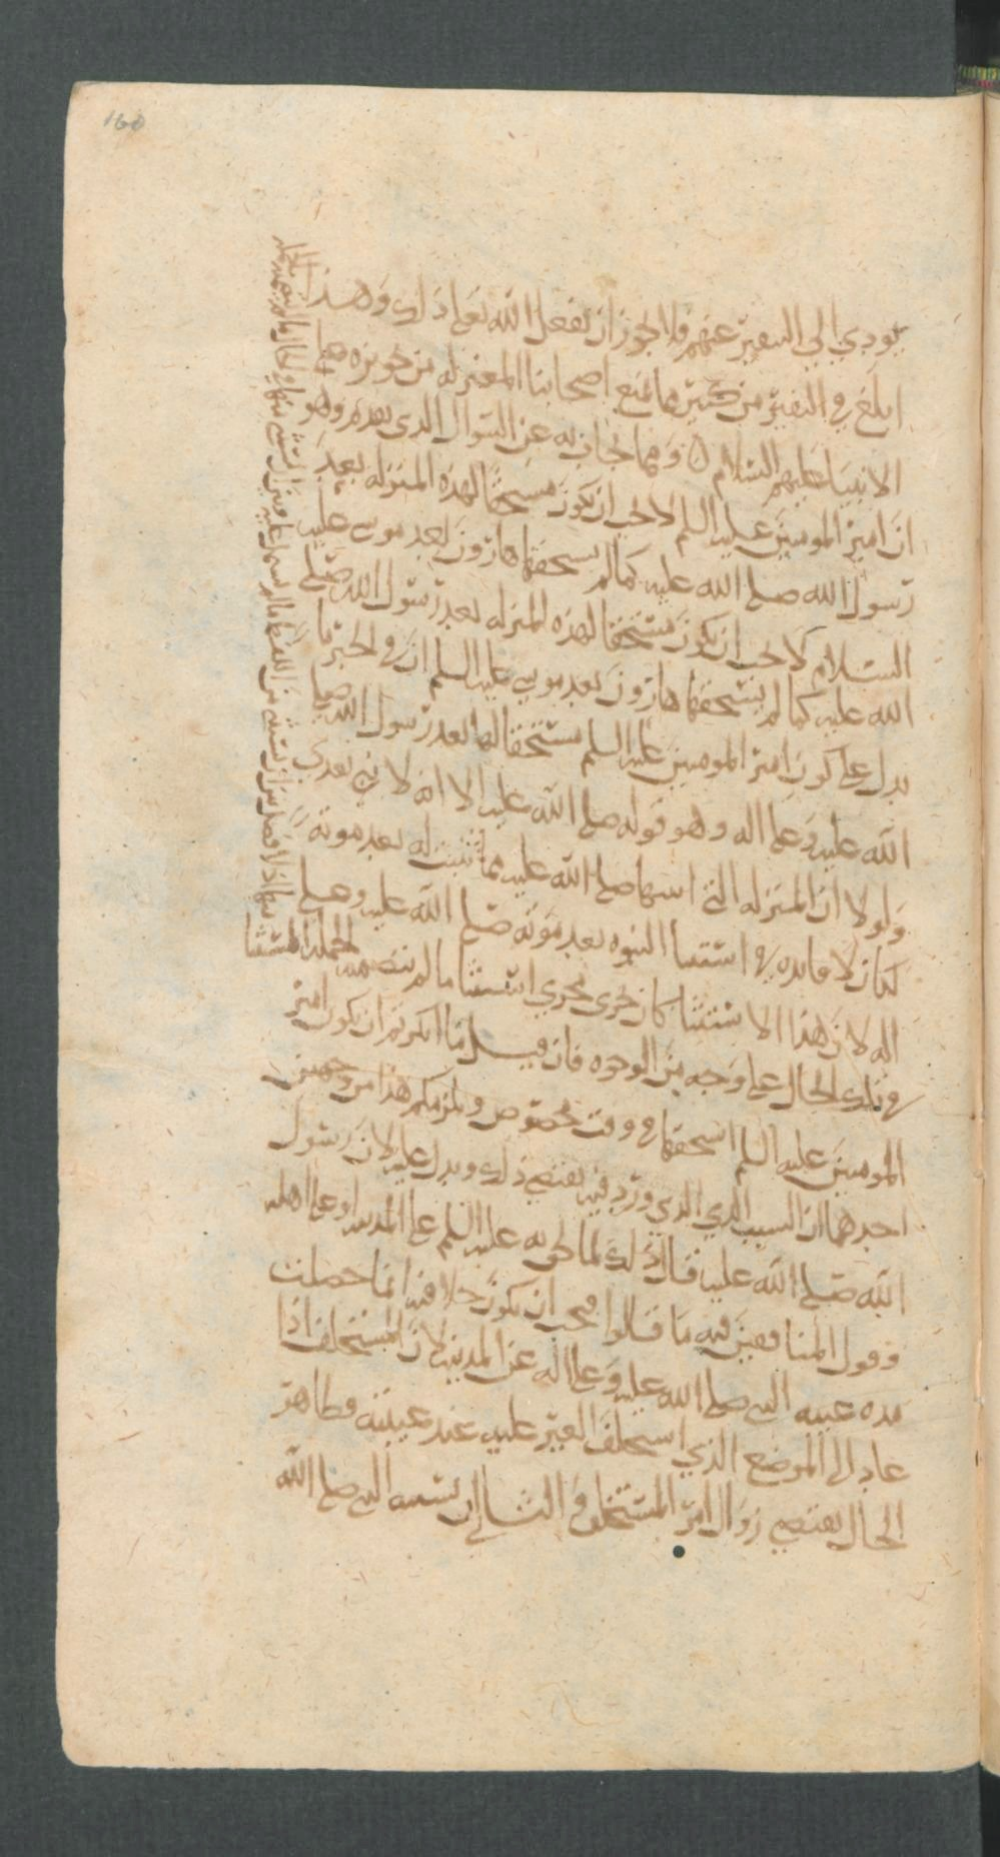 يودي الي التنفير عنهم فلا يجوز ان يفعل الله تعالى ذلك وهذا
ابلغ في التنفير من كثير مما منع اصحابنا المعتزله من تجويزه على
الانبيا عليهم السلام ومما يجاب به عن السوال الذي تقدم وهو
ان امير المومنين عليه السلم لا يجب ان يكون مستحقا لهذه المنزله بعد
رسول الله صلى الله عليه كما لم يستحقها هارون بعد موسى عليه
السلام لا يجب ان يكون مستحقا لهذه المنزله بعد رسول الله صلى
الله عليه كما لم يستحقها هارون بعد موسى عليه السلم ان في الخبر ما
يدل على كون امير المومنين عليه السلم مستحقا لها بعد رسول الله صلى
الله عليه وعلى اله وهو قوله صلى الله عليه الا انه لا نبي بعدي
ولولا ان المنزله التي اثبتها صلى الله عليه مما تثبت له بعد موته
لكان لا فايده في استثنا النبوه بعد موته صلى الله عليه وعلى
اله لان هذا الاستثنا كان يجري مجري استثنا ما لم تتضمنه الجمله المستثنا
في تلك الحال على وجه من الوجوه فان قيل ما انكرتم ان يكون امير
المومنين عليه السلم استحقها في وقت مخصوص ويلزمكم هذا من وجهين
احدهما ان السبب الذي الذي ورد فيه يقتضي ذلك ويدل عليه لان رسول
الله صلى الله عليه قال ذلك لما خلفه عليه السلم على المدينه او على اهله
وقول المنافقين فيه ما قالوا فيجب ان يكون خلافته انما حصلت
مده غيبه النبي صلى الله عليه وعلى اله عن المدينه لان المستخلف اذا
عاد الى الموضع الذي استخلف الغير عليه عند غيبته فظاهر
الحال يقتضي زوال امر المستخلف والثاني ان تشبيه النبي صلى الله